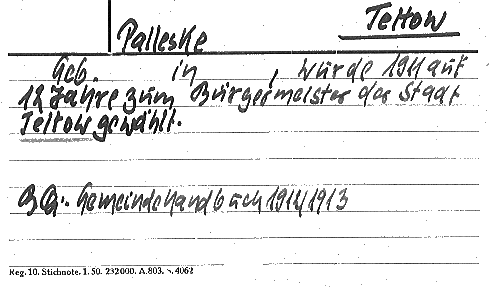 Teltow
Palleske
Geb. in , wurde 1911 auf
12 Jahre zum Bürgermeister der Stadt
Teltow gewählt.
BG: Gemeindehandbuch 1911/1913
Reg. 10. Stichnote. 1. 50. 232000. A.803. 4062